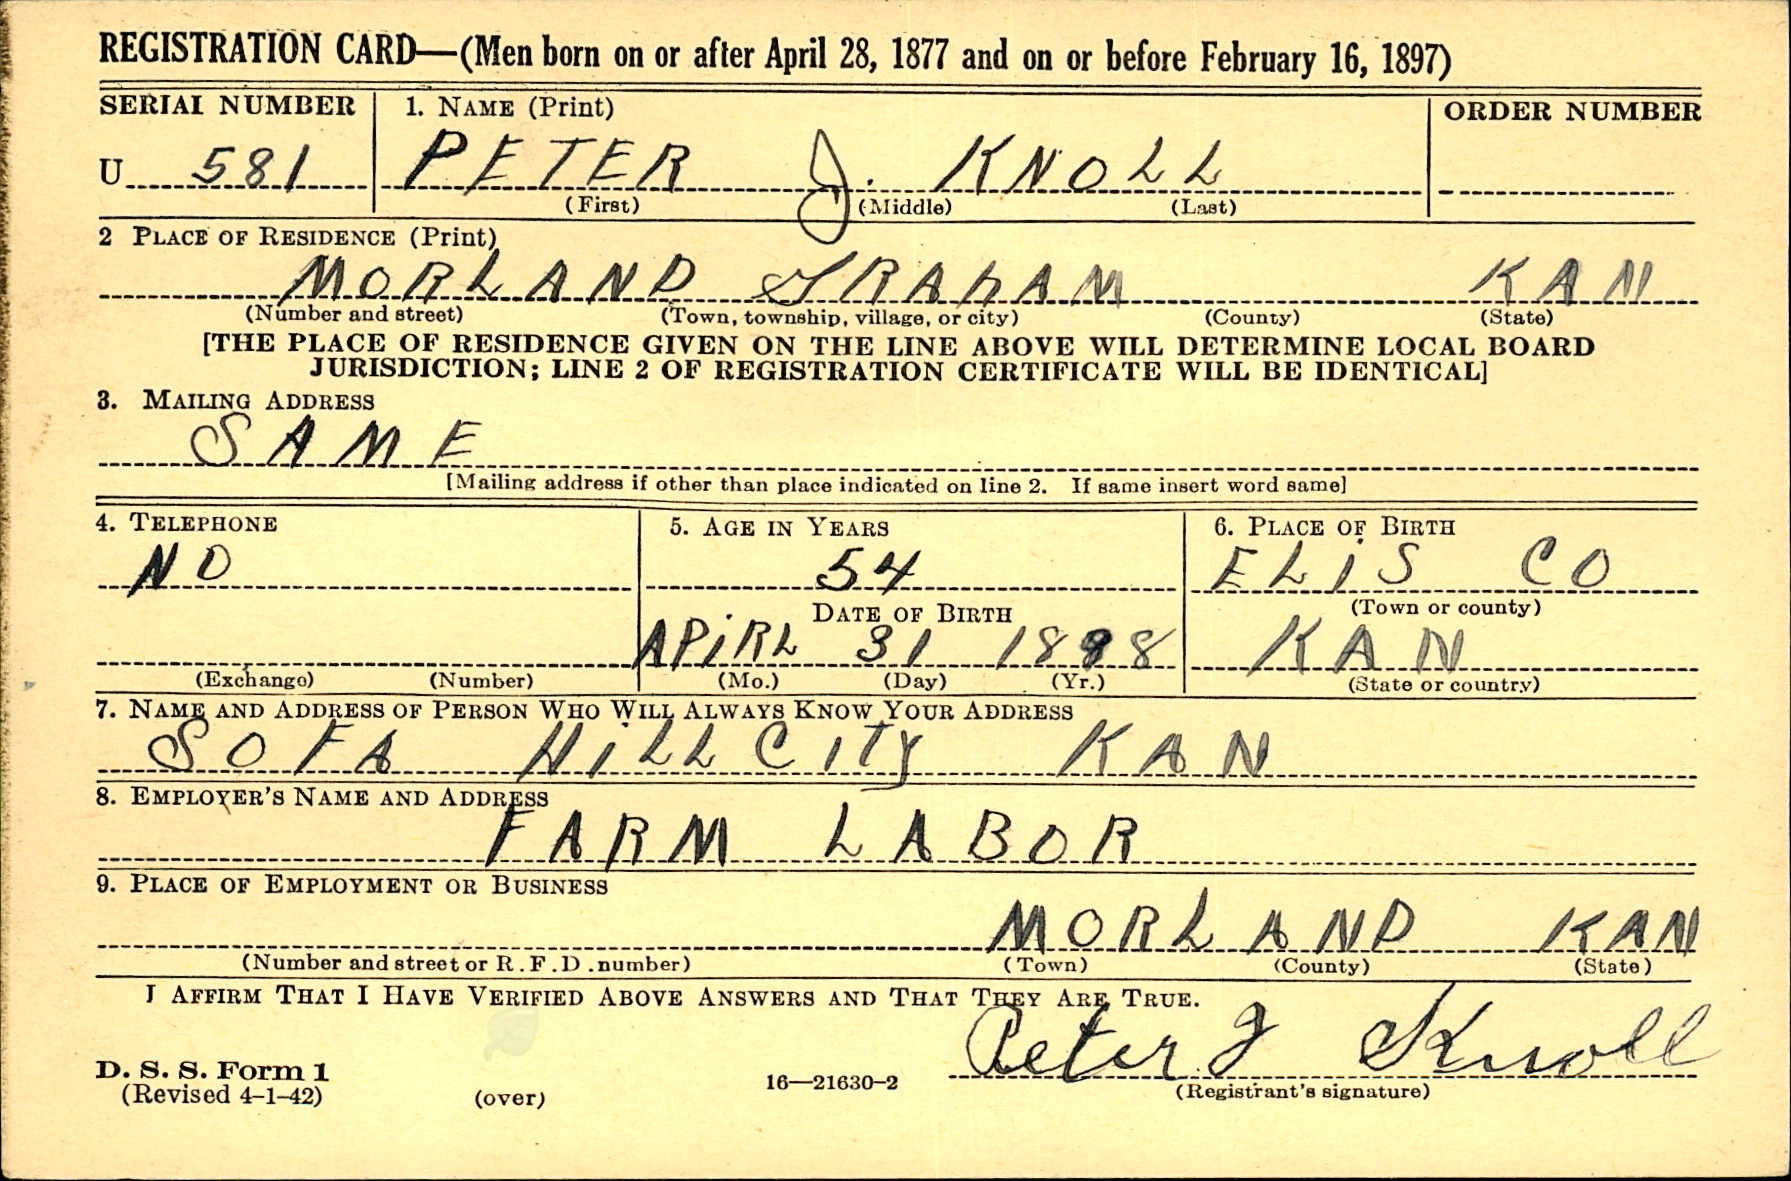 REGISTRATION CARD—(Men born on or after April 28, 1877 and on or before February 16, 1897)
SERIAL NUMBER 1. NAME (Print) ORDER NUMBER
U 581 PETER J. KNOLL
(First) (Middle) (Last)
2 PLACE OF RESIDENCE (Print)
MORLAND GRAHAM KAN
(Number and street) (Town, township, village, or city) (County) (State)
[THE PLACE OF RESIDENCE GIVEN ON THE LINE ABOVE WILL DETERMINE LOCAL BOARD
JURISDICTION; LINE 2 OF REGISTRATION CERTIFICATE WILL BE IDENTICAL]
3. MAILING ADDRESS
SAME
[Mailing address if other than place indicated on line 2. If same insert word same]
4. TELEPHONE 5. AGE IN YEARS 6. PLACE OF BIRTH
NO 54 ELIS CO
DATE OF BIRTH (Town or county)
APIRL 31 1888 KAN
(Exchange) (Number) (Mo.) (Day) (Yr.) (State or country)
7. NAME AND ADDRESS OF PERSON WHO WILL ALWAYS KNOW YOUR ADDRESS
SOFA HILL CITY KAN
8. EMPLOYER'S NAME AND ADDRESS
FARM LABOR
9. PLACE OF EMPLOYMENT OR BUSINESS
MORLAND KAN
(Number and street or R.F.D. number) (Town) (County) (State)
I AFFIRM THAT I HAVE VERIFIED ABOVE ANSWERS AND THAT THEY ARE TRUE.
Peter J Knoll
D. S. S. Form 1
(Revised 4-1-42) (over) 16—21630-2 (Registrant's signature)